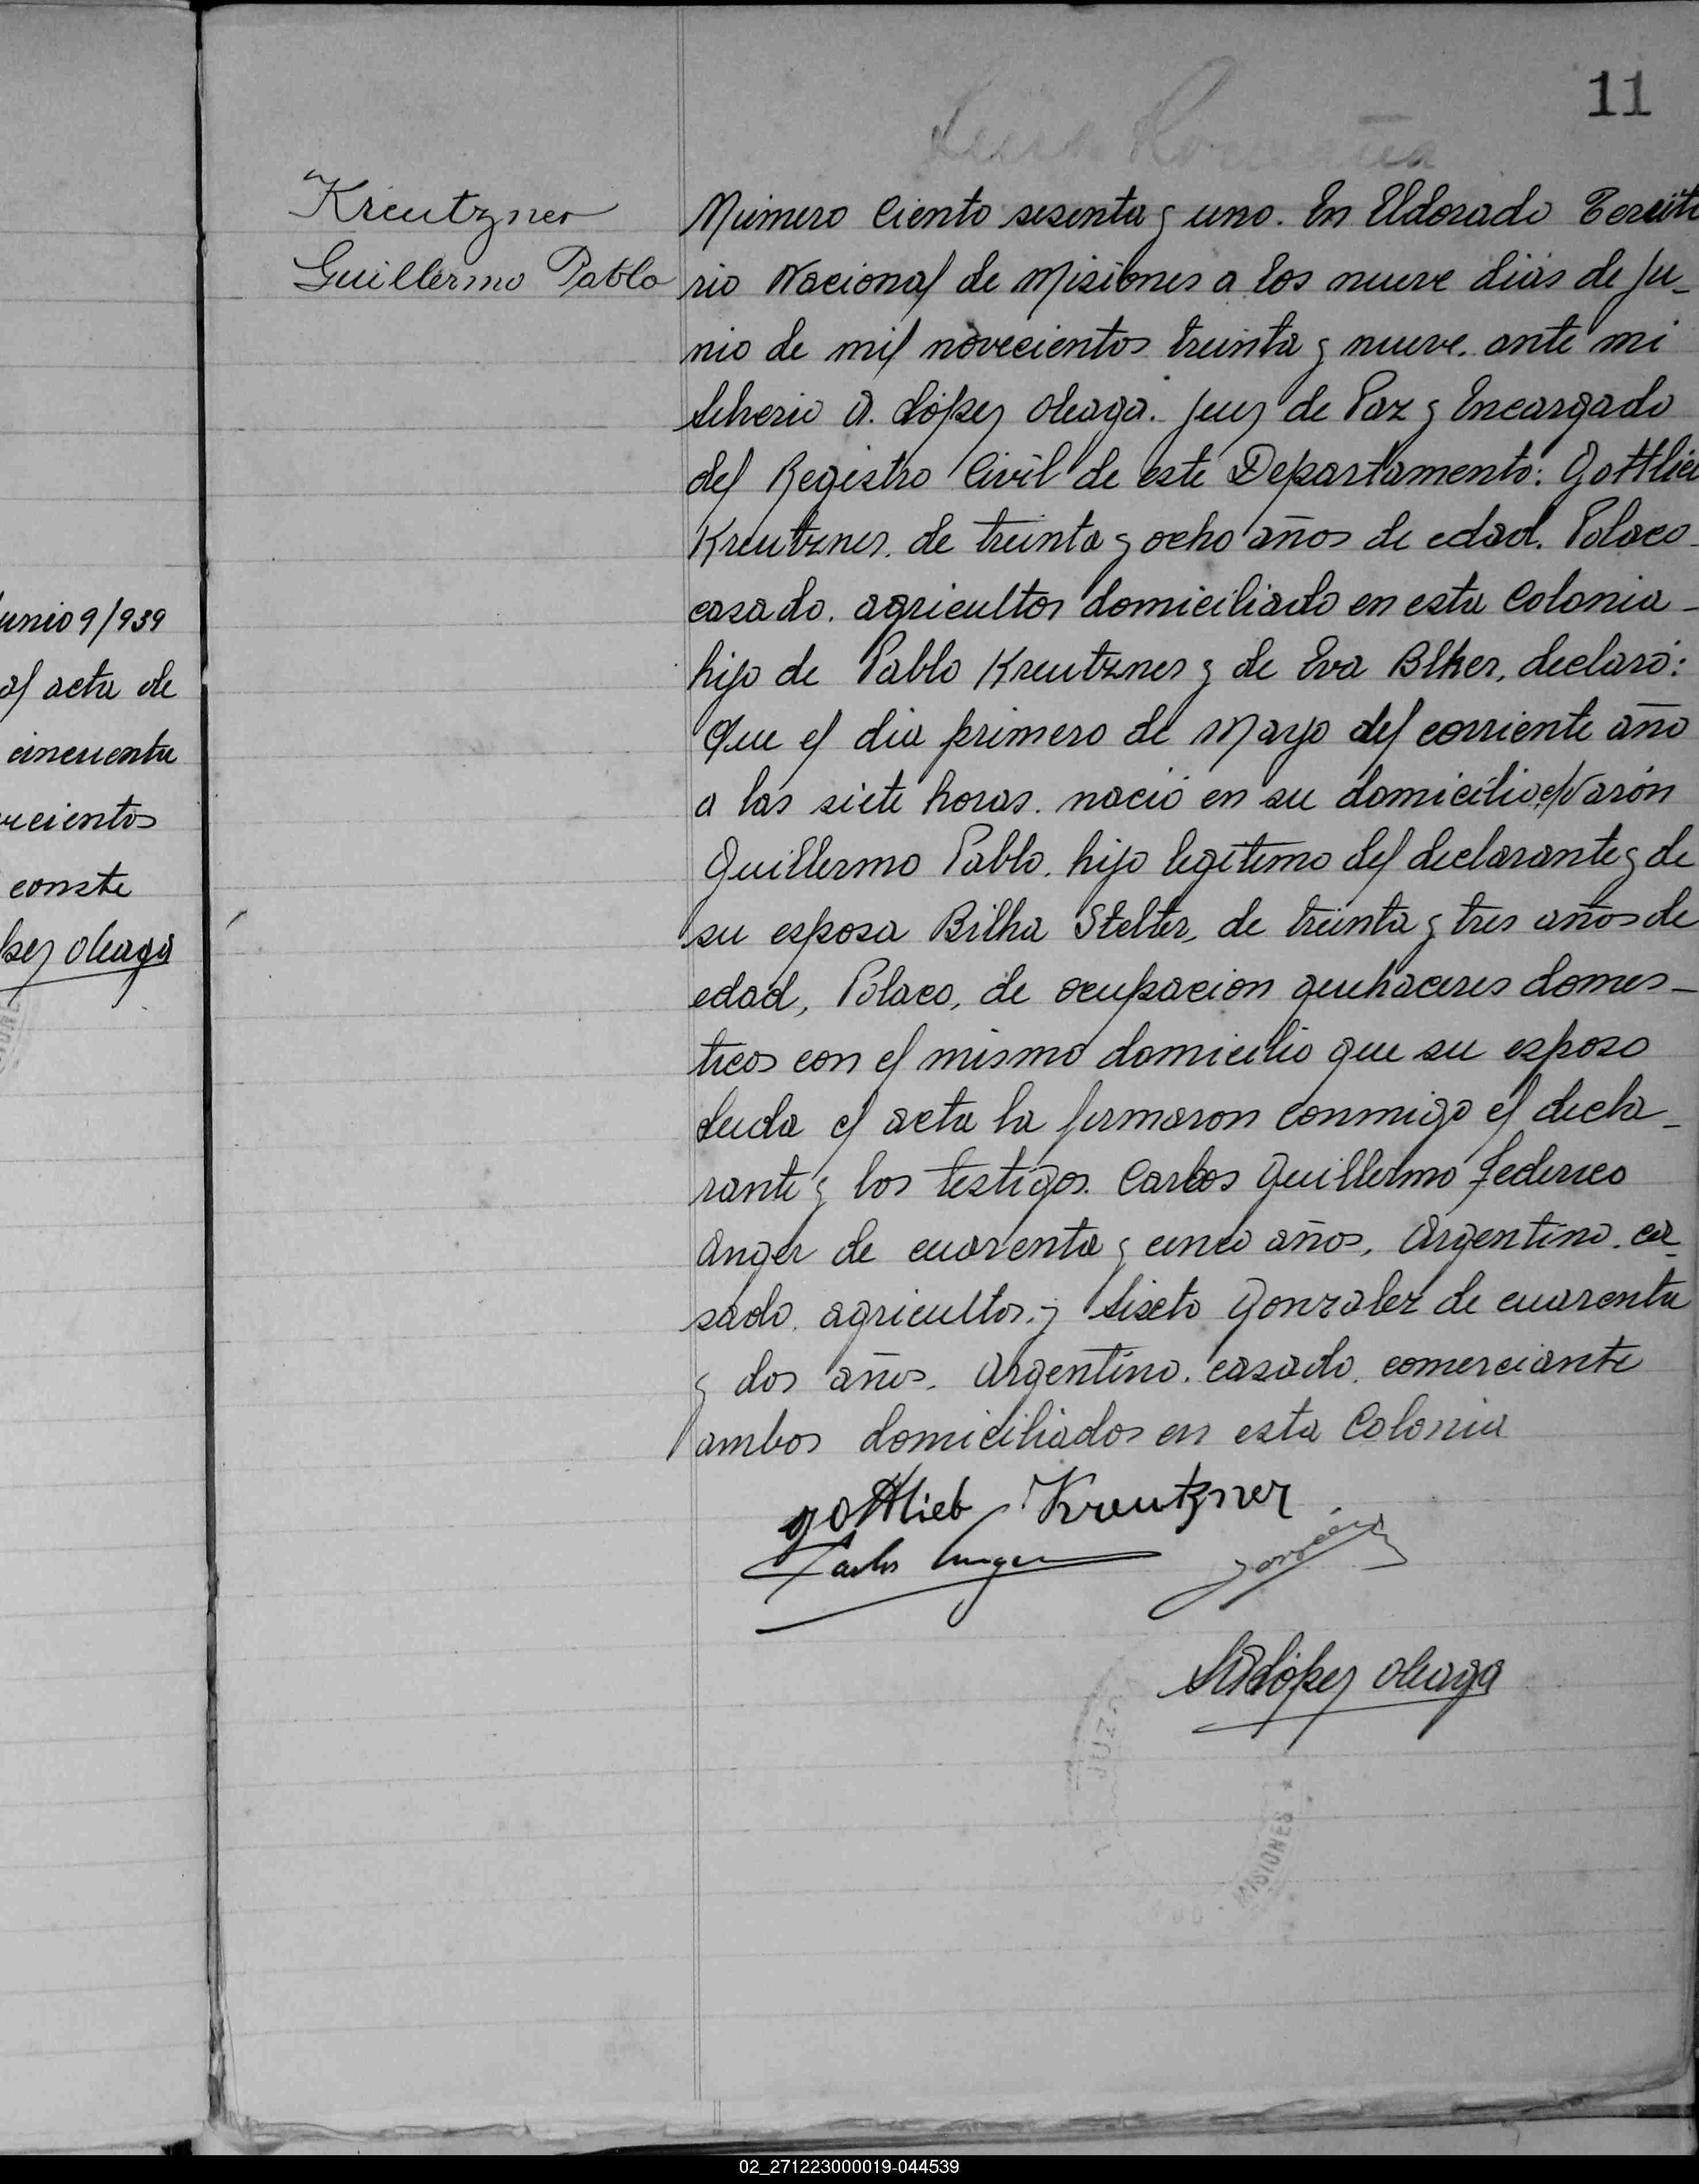 11
Kreutzner
Guillermo Pablo
Número Ciento sesenta y uno. En Eldorado Territo
rio Nacional de Misiones a los nueve dias de Ju_
nio de mil novecientos treinta y nueve. ante mi
A. López Oleaga. Juez de Paz y Encargado
del Registro Civil de este Departamento: Gottlieb
Kreutzner. de treinta y ocho años de edad. Polaco_
casado. agricultor domiciliado en esta Colonia_
hijo de Pablo Kreutzner y de Eva Blker, declaró:
Que el dia primero de Mayo del corriente año
a las siete horas. nació en su domicilio el Varón
Guillermo Pablo. hijo legitimo del declarante y de
su esposa Bilha Stelter, de treinta y tres años de
edad, Polaco, de ocupacion quehaceres domes_
ticos con el mismo domicilio que su esposo
Leida el acta la firmaron conmigo el decla_
rante y los testigos. Carlos Guillermo Federico
Anger de cuarenta y cinco años, Argentino. ca_
sado. agricultor. y Sixto Gonzalez de cuarenta
y dos años. Argentino. casado. comerciante
ambos domiciliados en esta Colonia
gottlieb Kreutzner
Carlos Anger
López Oleaga
JUZ
MISIONES *
unio 9/939
al acta de
cincuenta
vecientos
conste
pez Oleaga
02_271223000019-044539